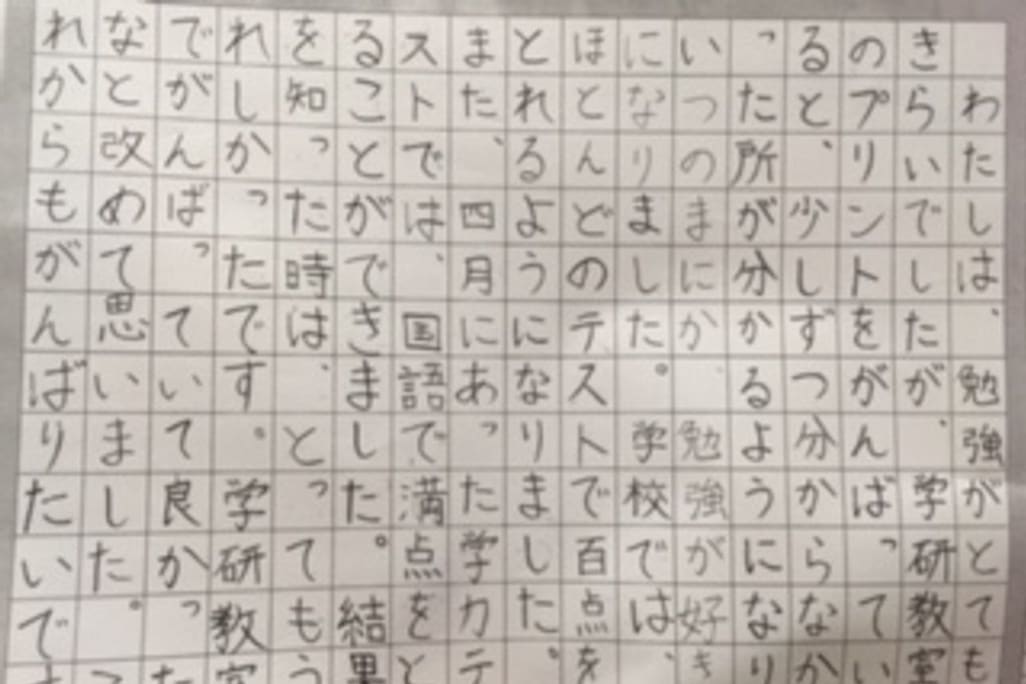 わたしは、勉強がとても
きらいでしたが、学研教室
のプリントをがんばってい
ると、少しずつ分からなか
った所が分かるようになり
いつのまにか、勉強が好き
になりました。学校では、
ほとんどのテストで百点を
とれるようになりました。
また、四月にあった学力テ
ストでは、国語で満点をと
ることができました。結果
を知った時は、とってもう
れしかったです。学研教室
でがんばっていて良かった
なと改めて思いました。こ
れからもがんばりたいで